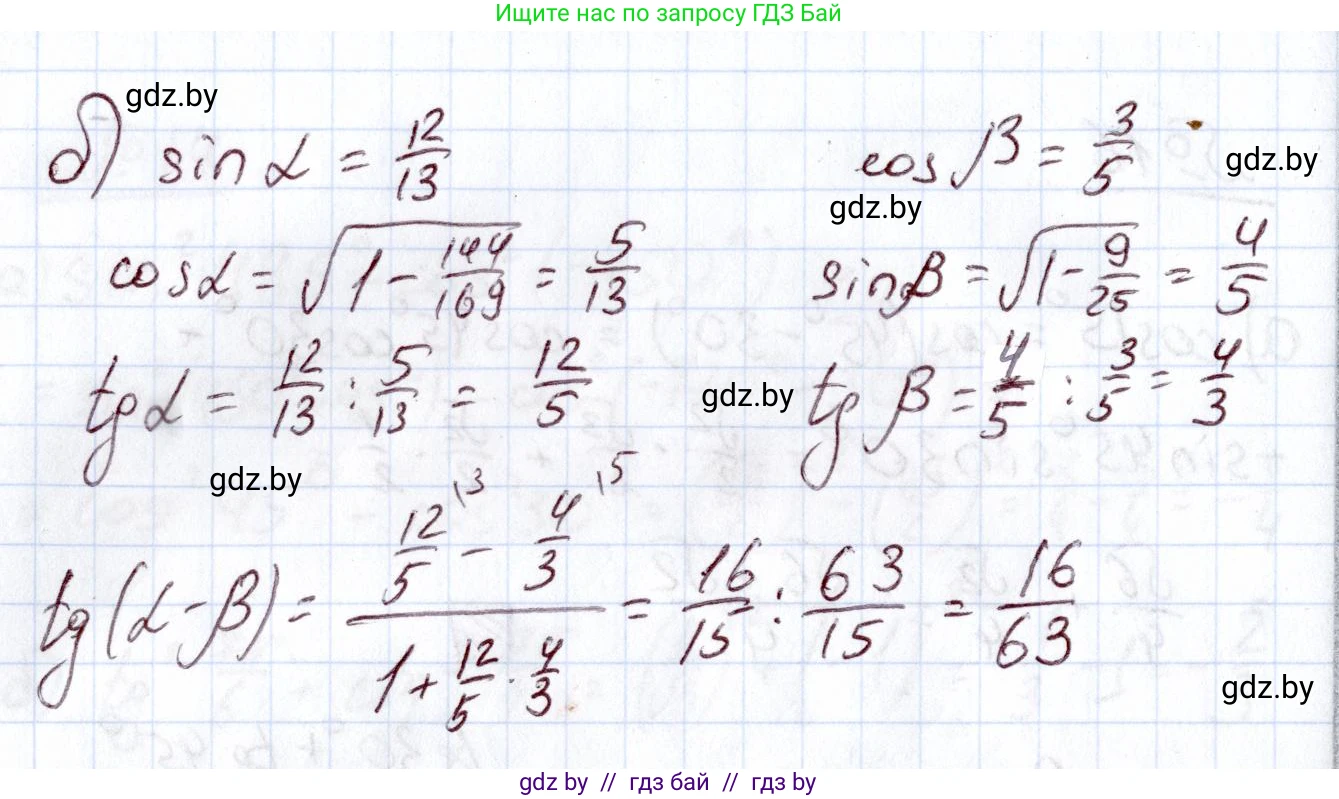 Ищите нас по запросу ГДЗ Бай
gdz.by
б) sin α = 12/13
cos β = 3/5
gdz.by
gdz.by
cos α = √(1 - 144/169) = 5/13
sin β = √(1 - 9/25) = 4/5
tg α = 12/13 : 5/13 = 12/5
gdz.by
tg β = 4/5 : 3/5 = 4/3
gdz.by
tg(α - β) = (12/5 \3 - 4/3 \5)/(1 + 12/5 · 4/3) = 16/15 : 63/15 = 16/63
gdz.by
gdz.by // гдз бай // гдз by